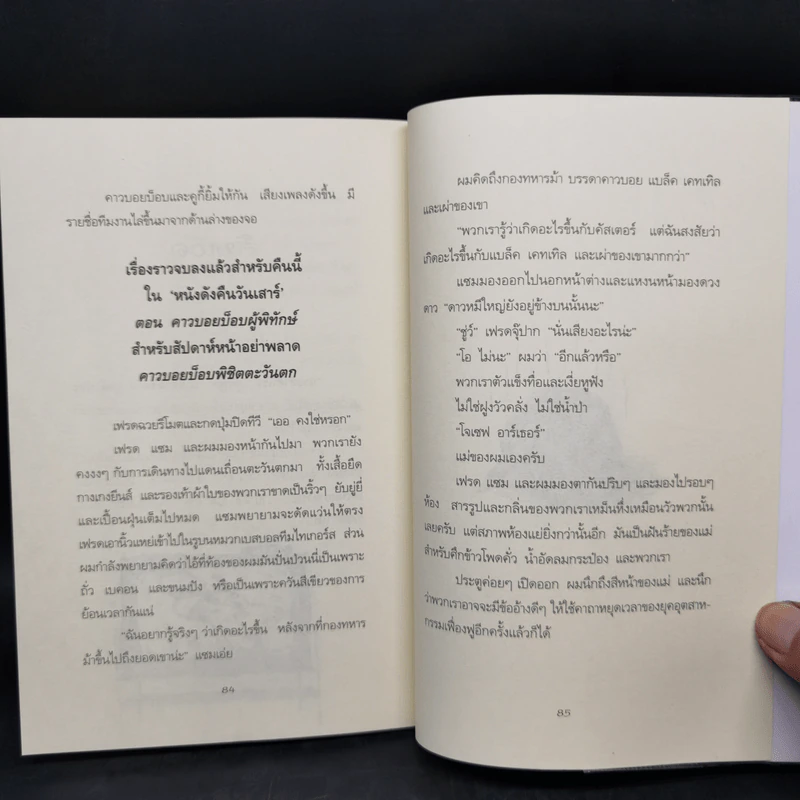 คาวบอยบ็อบและคูกี้ยิ้มให้กัน เสียงเพลงดังขึ้น มี
รายชื่อทีมงานไล่ขึ้นมาจากด้านล่างของจอ
เรื่องราวจบลงแล้วสำหรับคืนนี้
ใน ‘หนังดังคืนวันเสาร์’
ตอน คาวบอยบ็อบผู้พิทักษ์
สำหรับสัปดาห์หน้าอย่าพลาด
คาวบอยบ็อบพิชิตตะวันตก
เฟรดฉวยรีโมตและกดปุ่มปิดทีวี “เออ คงใช่หรอก”
เฟรด แซม และผมมองหน้ากันไปมา พวกเรายัง
คงงงๆ กับการเดินทางไปแดนเถื่อนตะวันตกมา ทั้งเสื้อยืด
กางเกงยีนส์ และรองเท้าผ้าใบของพวกเราขาดเป็นริ้วๆ ยับยู่ยี่
และเปื้อนฝุ่นเต็มไปหมด แซมพยายามจะดัดแว่นให้ตรง
เฟรดเอานิ้วแหย่เข้าไปในรูบนหมวกเบสบอลทีมไทเกอร์ส ส่วน
ผมกำลังพยายามคิดว่าไอ้ที่ท้องของผมมันปั่นป่วนนี่เป็นเพราะ
ถั่ว เบคอน และขนมปัง หรือเป็นเพราะควันสีเขียวของการ
ย้อนเวลากันแน่
“ฉันอยากรู้จริงๆ ว่าเกิดอะไรขึ้น หลังจากที่กองทหาร
ม้าขึ้นไปถึงยอดเขาน่ะ” แซมเอ่ย
84
ผมคิดถึงกองทหารม้า บรรดาคาวบอย แบล็ค เคทเทิล
และเผ่าของเขา
“พวกเรารู้ว่าเกิดอะไรขึ้นกับคัสเตอร์ แต่ฉันสงสัยว่า
เกิดอะไรขึ้นกับแบล็ค เคทเทิล และเผ่าของเขามากกว่า”
แซมมองออกไปนอกหน้าต่างและแหงนหน้ามองดวง
ดาว “ดาวหมีใหญ่ยังอยู่ข้างบนนั้นนะ”
“ชู่ว์” เฟรดจุ๊ปาก “นั่นเสียงอะไรน่ะ”
“โอ ไม่นะ” ผมว่า “อีกแล้วหรือ”
พวกเราตัวแข็งทื่อและเงี่ยหูฟัง
ไม่ใช่ฝูงวัวคลั่ง ไม่ใช่น้ำป่า
“โจเซฟ อาร์เธอร์”
แม่ของผมเองครับ
เฟรด แซม และผมมองตากันปริบๆ และมองไปรอบๆ
ห้อง สารรูปและกลิ่นของพวกเราเหม็นหึ่งเหมือนวัวพวกนั้น
เลยครับ แต่สภาพห้องแย่ยิ่งกว่านั้นอีก มันเป็นฝันร้ายของแม่
สำหรับศึกข้าวโพดคั่ว น้ำอัดลมกระป๋อง และพวกเรา
ประตูค่อยๆ เปิดออก ผมนึกถึงสีหน้าของแม่ และนึก
ว่าพวกเราอาจจะมีข้ออ้างดีๆ ให้ใช้คาถาหยุดเวลาของยุคอุตสาห-
กรรมเฟื่องฟูอีกครั้งแล้วก็ได้
85